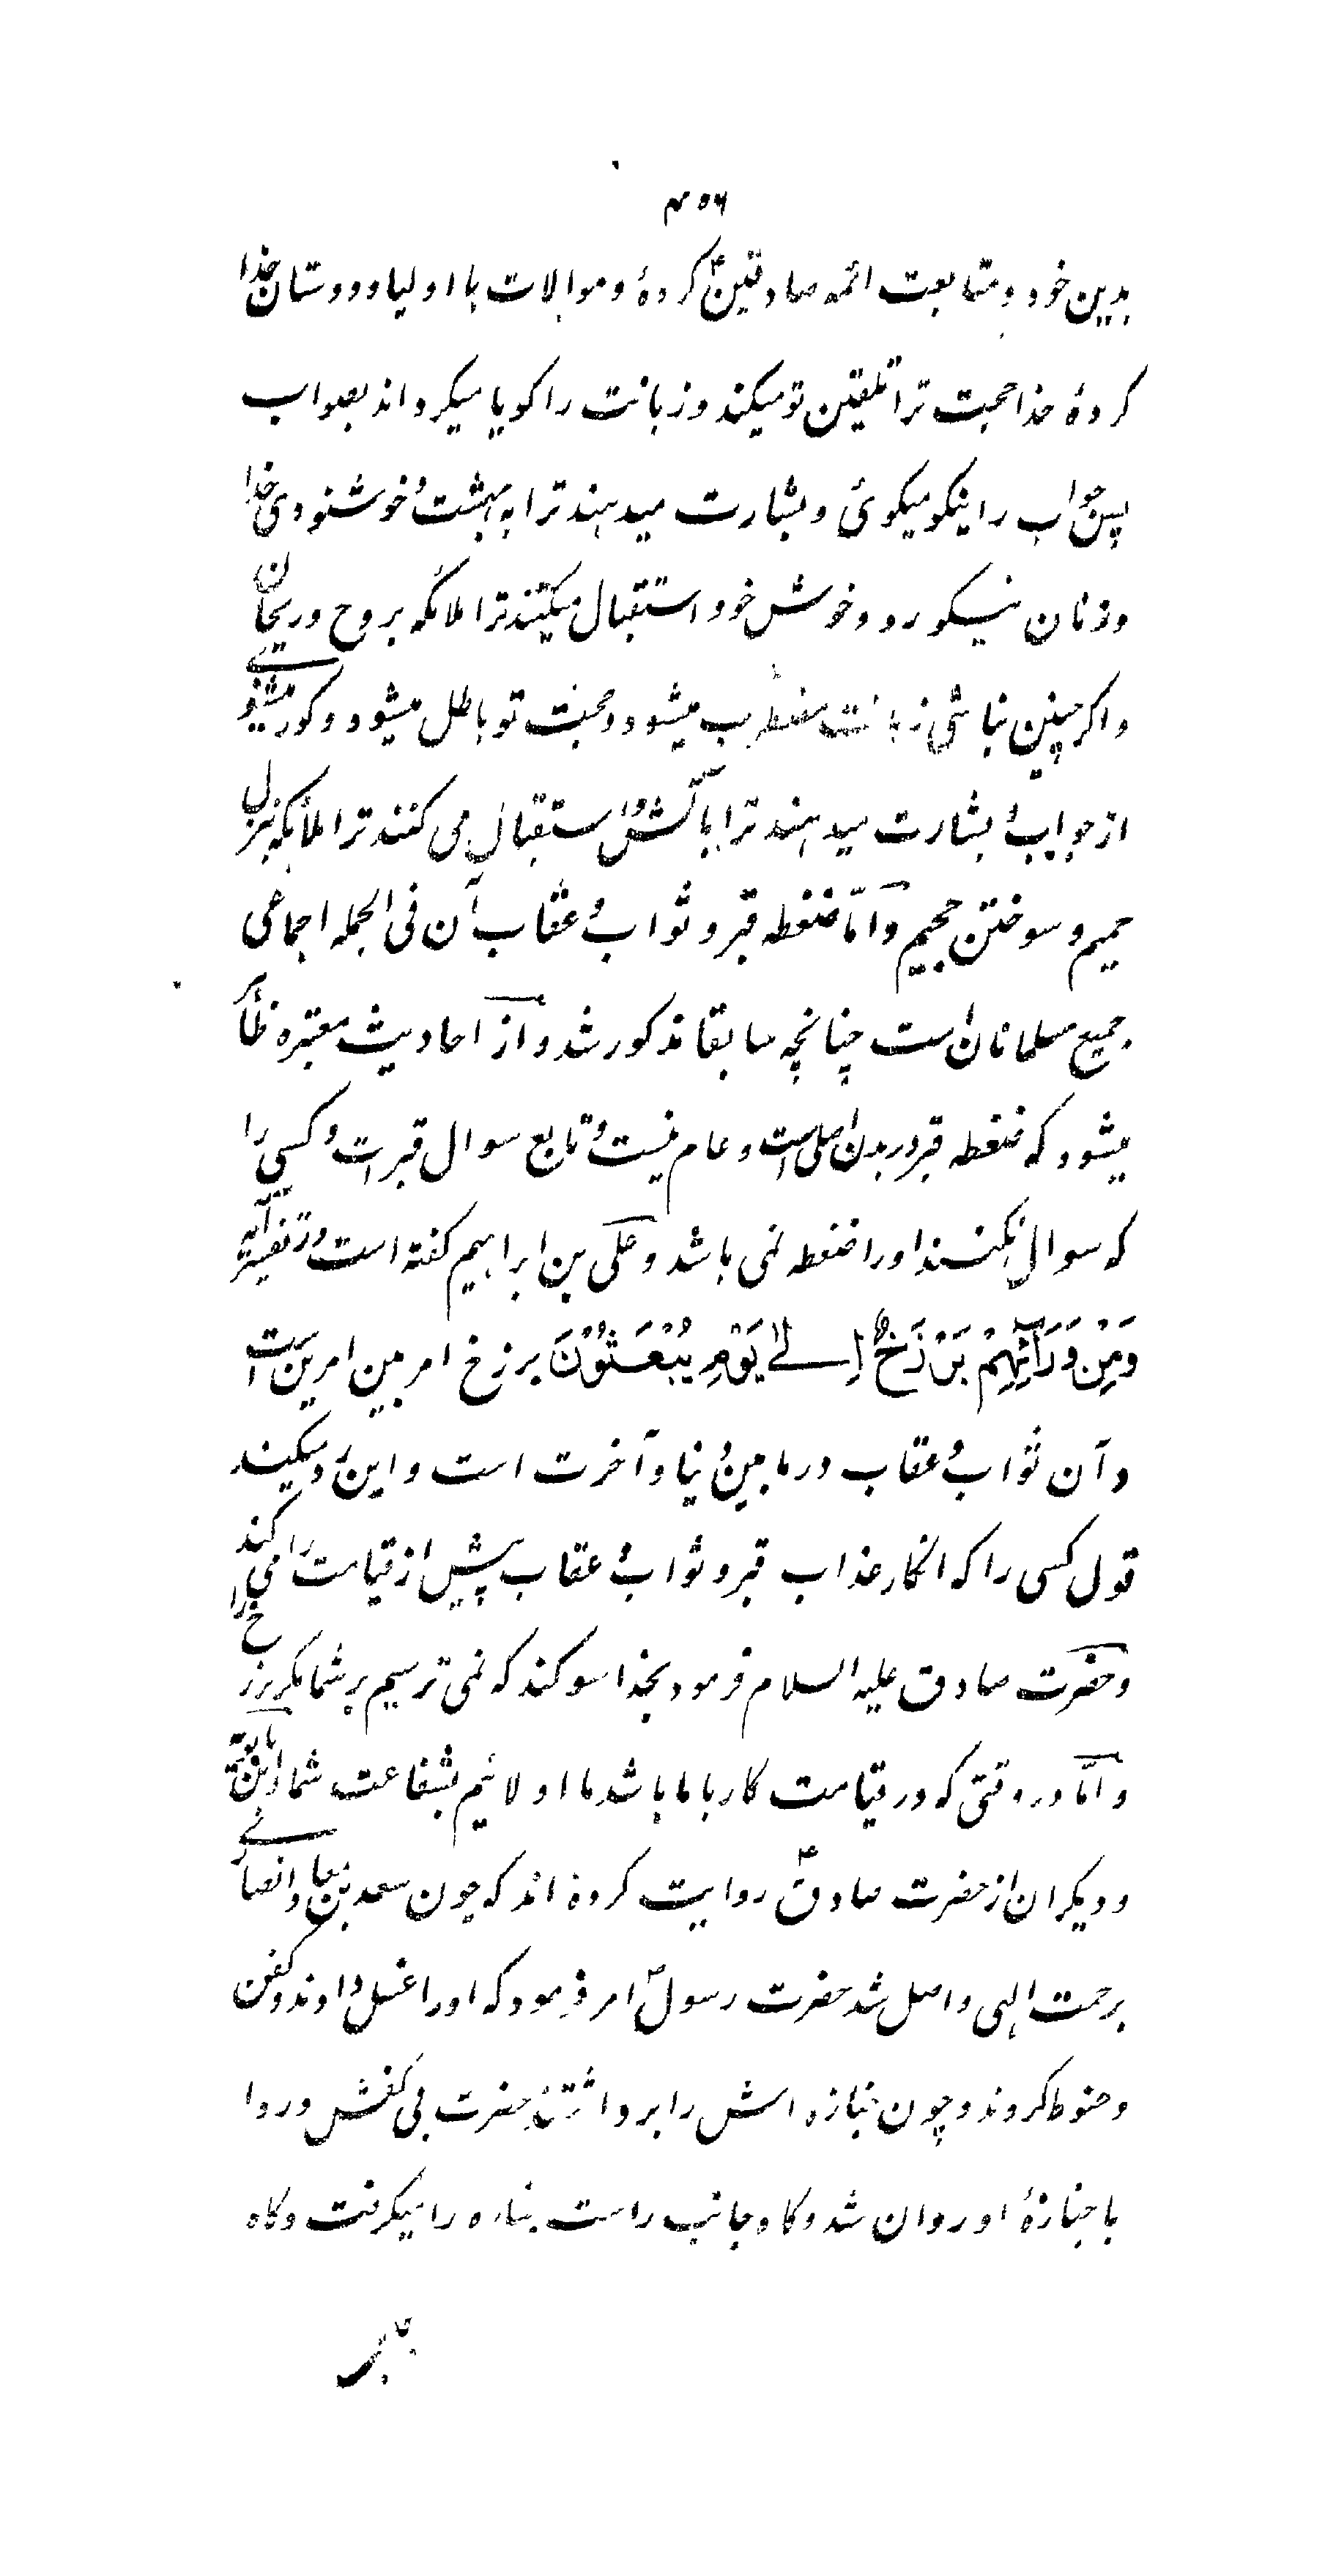 ۴۵۶
بدین خود و متابعت ائمه صادقینؑ کردهٔ و موالات با اولیا و دوستان خدا
کردهٔ خدا حجبت ترا تلقین تو میکند و زبانت را کویا میکرداند بصواب
پس جواب را نیکو میکوئی و بشارت میدهند ترا به بهشت و خوشنودی خدا
و زنان نیکو رو و خوش خو و استقبال میکنند ترا ملائکه بروح و ریحان
و اکر چنین نباشی زبانت مضطرب میشود و حجت تو باطل میشود و کور میشوی
از جواب و بشارت میدهند ترا بآتش و استقبال می کنند ترا ملائکه بنزل
حمیم و سوختن جحیم و امّا ضغطه قبر و ثواب و عقاب آن فی الجمله اجماعی
جمیع مسلمانان است چنانچه سابقا مذکور شد و از احادیث معتبره ظاهر
میشود که ضغطه قبر در بدن اصلی است و عام نیست و تابع سوال قبر است و کسی را
که سوال نکنند او را ضغطه نمی باشد و علی بن ابراهیم کفته است در تفسیر آیه
وَمِنْ وَرَآئِهِمْ بَرْزَخٌ اِلٰے یَوْمِ یُبْعَثُوْنَ برزخ امر بین امرین است
و آن ثواب و عقاب در مابین دنیا و آخرت است و این رد میکند
قول کسی را که انکار عذاب قبر و ثواب و عقاب پیش از قیامت را می کند
و حضرت صادق علیه السلام فرمود بخدا سوکند که نمی ترسیم بر شما مکر برزخ را
و امّا در وقتی که در قیامت کار با ما باشد ما اولائیم بشفاعت شما و ابن بابویه
و دیکران از حضرت صادقؑ روایت کرده اند که چون سعد بن معاذ انصاری
برحمت الهی واصل شد حضرت رسولؐ امر فرمود که او را غسل دادند و کفن
و حنوط کردند و چون جنازه اش را برداشتند حضرت بی کفش و ردا
با جنازهٔ او روان شد و کاه جانب راست جنازه را میکرفت و کاه